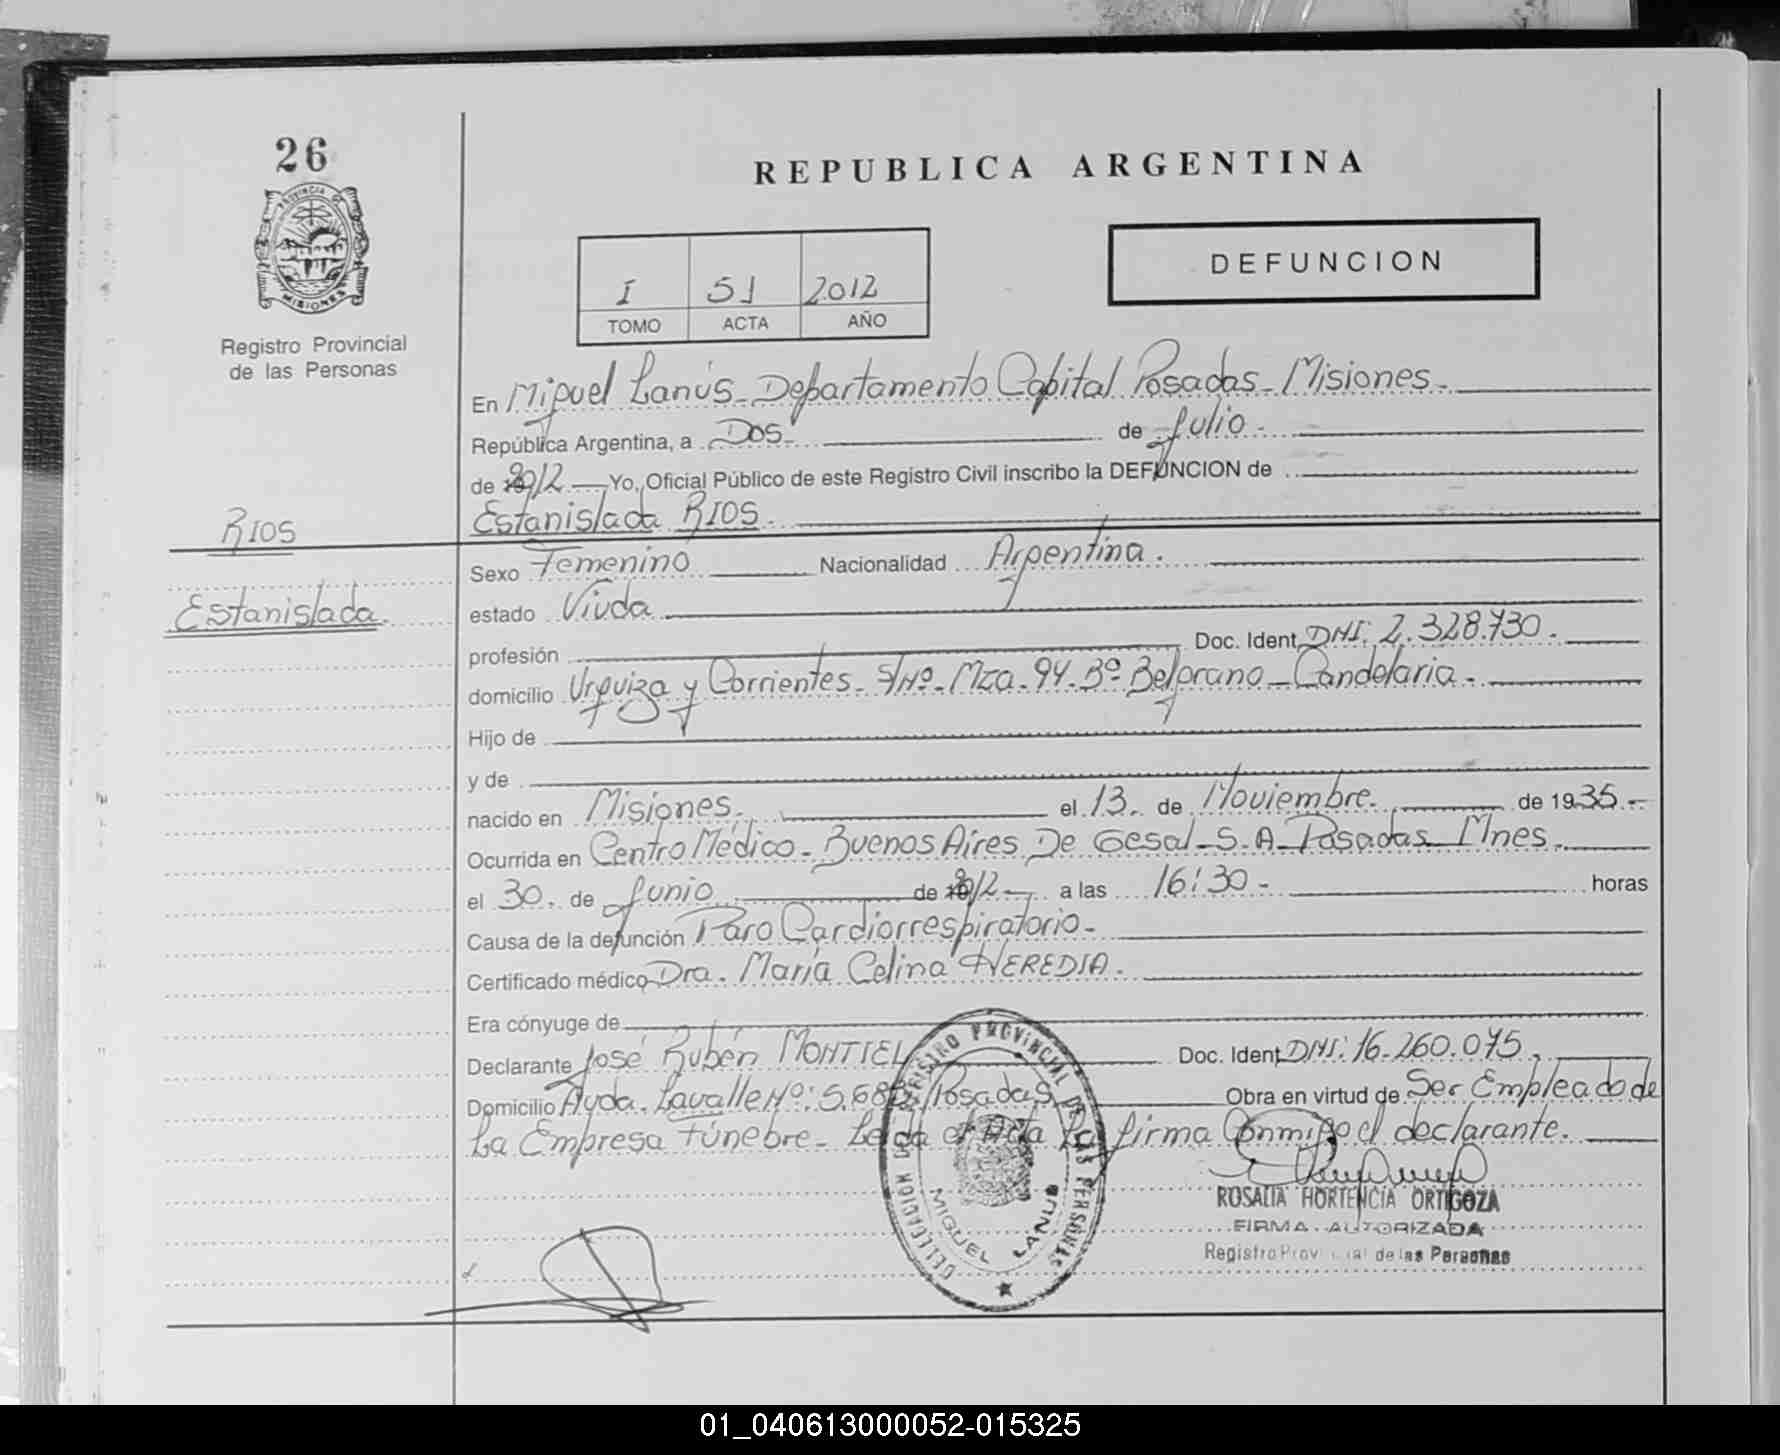 26
PROVINCIA DE
MISIONES
Registro Provincial
de las Personas
REPUBLICA ARGENTINA
I 51 2012
TOMO ACTA AÑO
DEFUNCION
En Miguel Lanús - Departamento Capital Posadas - Misiones.
República Argentina, a Dos de Julio.
de 2012 Yo, Oficial Público de este Registro Civil inscribo la DEFUNCION de
Estanislada RIOS.
RIOS
Estanislada.
Sexo Femenino Nacionalidad Argentina.
estado Viuda
profesión Doc. Ident. DNI: 2.328.730.
domicilio Urquiza y Corrientes. S/Nº. Mza. 94. Bº Belgrano - Candelaria.
Hijo de
y de
nacido en Misiones. el 13. de Noviembre. de 1935.-
Ocurrida en Centro Médico - Buenos Aires De Gesal - S.A - Posadas - Mnes.
el 30. de Junio de 2012 a las 16:30 - horas
Causa de la defunción Paro Cardiorrespiratorio.-
Certificado médico Dra. María Celina HEREDIA.
Era cónyuge de
Declarante José Rubén MONTIEL Doc. Ident. DNI: 16.260.075.
Domicilio Avda. Lavalle Nº: 5.682 Posadas Obra en virtud de Ser Empleado de
La Empresa Fúnebre - Leída el Acta La firma Conmigo el declarante.
DELEGACION DEL REGISTRO PROVINCIAL DE LAS PERSONAS
MIGUEL LANUS
ROSALIA HORTENCIA ORTIGOZA
FIRMA AUTORIZADA
Registro Provincial de las Personas
01_040613000052-015325